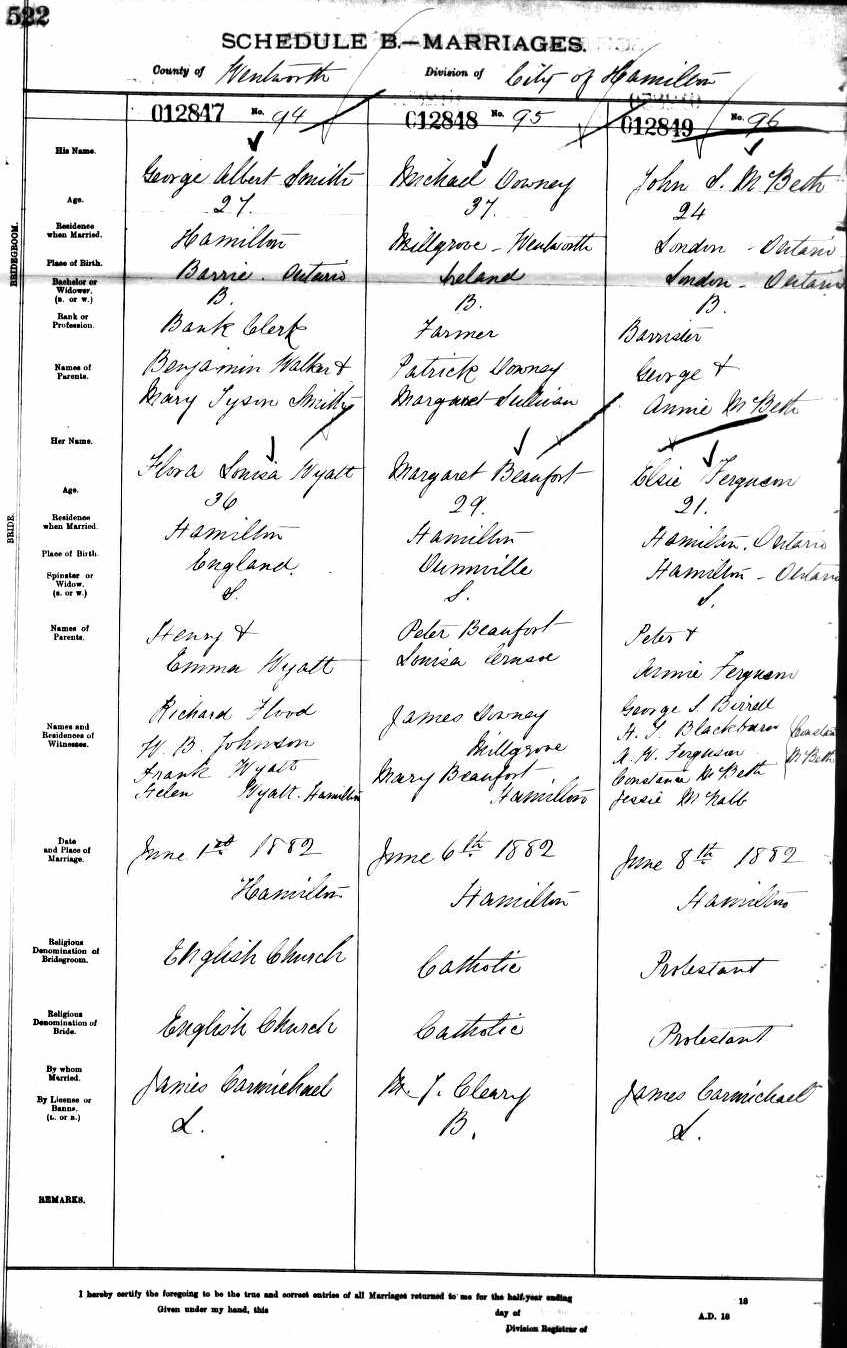 522
SCHEDULE B.—MARRIAGES.
County of Wentworth Division of City of Hamilton
012847 No. 94
012848 No. 95
012849 No. 96
BRIDEGROOM.
His Name. George Albert Smith Michael Downey John S. McBeth
Age. 27. 37. 24
Residence when Married. Hamilton Millgrove - Wentworth London - Ontario
Place of Birth. Barrie. Ontario Ireland London - Ontario
Bachelor or Widower. (B. or W.) B. B. B.
Rank or Profession. Bank Clerk Farmer Barrister
Names of Parents. Benjamin Walker & Patrick Downey George &
Mary Tyson Smith Margaret Sullivan Annie McBeth
BRIDE.
Her Name. Flora Louisa Wyatt Margaret Beaufort Elsie Ferguson
Age. 36 29. 21.
Residence when Married. Hamilton Hamilton Hamilton. Ontario
Place of Birth. England. Dunnville Hamilton - Ontario
Spinster or Widow. (S. or W.) S. S. S.
Names of Parents. Henry & Peter Beaufort Peter &
Emma Wyatt Louisa Annie Ferguson
Names and Residences of Witnesses.
Richard Flood
W. B. Johnson
Frank Wyatt
Helen Wyatt. Hamilton
James Downey
Millgrove
Mary Beaufort
Hamilton
George S. Birrell
H. S. Blackburn
A. W. Ferguson
Constance McBeth
Jessie McNabb
McBeth
Date and Place of Marriage. June 1st 1882 June 6th 1882 June 8th 1882
Hamilton Hamilton Hamilton
Religious Denomination of Bridegroom. English Church Catholic Protestant
Religious Denomination of Bride. English Church Catholic Protestant
By whom Married. James Carmichael M. J. Cleary James Carmichael
By License or Banns. (L. or B.) L. B. L.
REMARKS.
I hereby certify the foregoing to be the true and correct entries of all Marriages returned to me for the half-year ending 18
Given under my hand, this day of A.D. 18
Division Registrar of